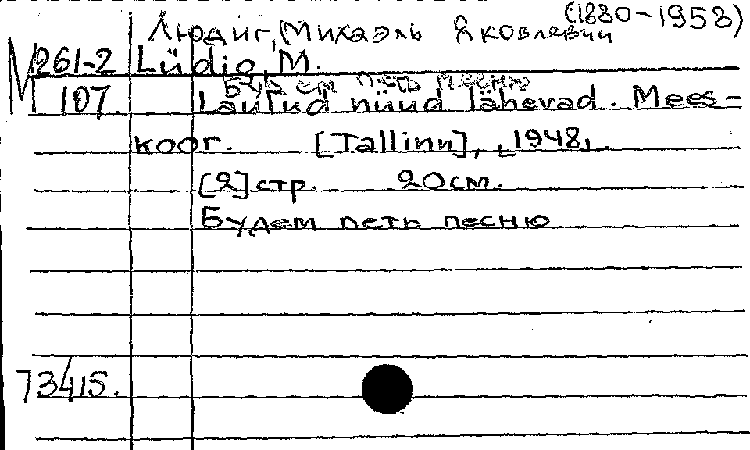 Людиг, Михаэль Яковлевич (1880-1958)
М 261-2 Lüdig, M.
Будем петь песню
107 Laulud nüüd lähevad. Mees-
koor. [Tallinn], [1948].
[2] стр. 20 см.
Будем петь песню
73415.